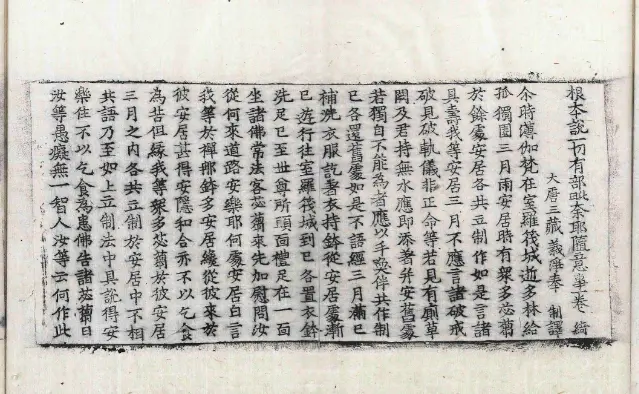 根本說一切有部毗奈耶隨意事卷 綺
大唐三藏義淨奉 制譯
尒時薄伽梵在室羅筏城逝多林給
孤獨園三月雨安居時有眾多苾蒭
於餘處安居各共立制作如是言諸
具壽我等安居三月不應言諸破戒
破見破軌儀非正命等若見有厠草
闕及君持無水應即添著并安舊處
若獨自不能為者應以手喚伴共作制
已各還舊處如是不語經三月滿已
補洗衣服訖著衣持鉢從安居處漸
已遊行往室羅筏城到已各置衣鉢
洗足已至世尊所頭面禮足在一面
坐諸佛常法客苾蒭來先加慰問汝
從何來道路安樂耶何處安居白言
我等於禪那鉢多安居緣從彼來於
彼安居甚得安隱和合亦不以乞食
為苦但緣我等眾多苾蒭於彼安居
三月之內各共立制於安居中不相
共語乃至如上立制法中具說得安
樂住不以乞食為患佛告諸苾蒭曰
汝等愚癡無一智人汝等云何作此